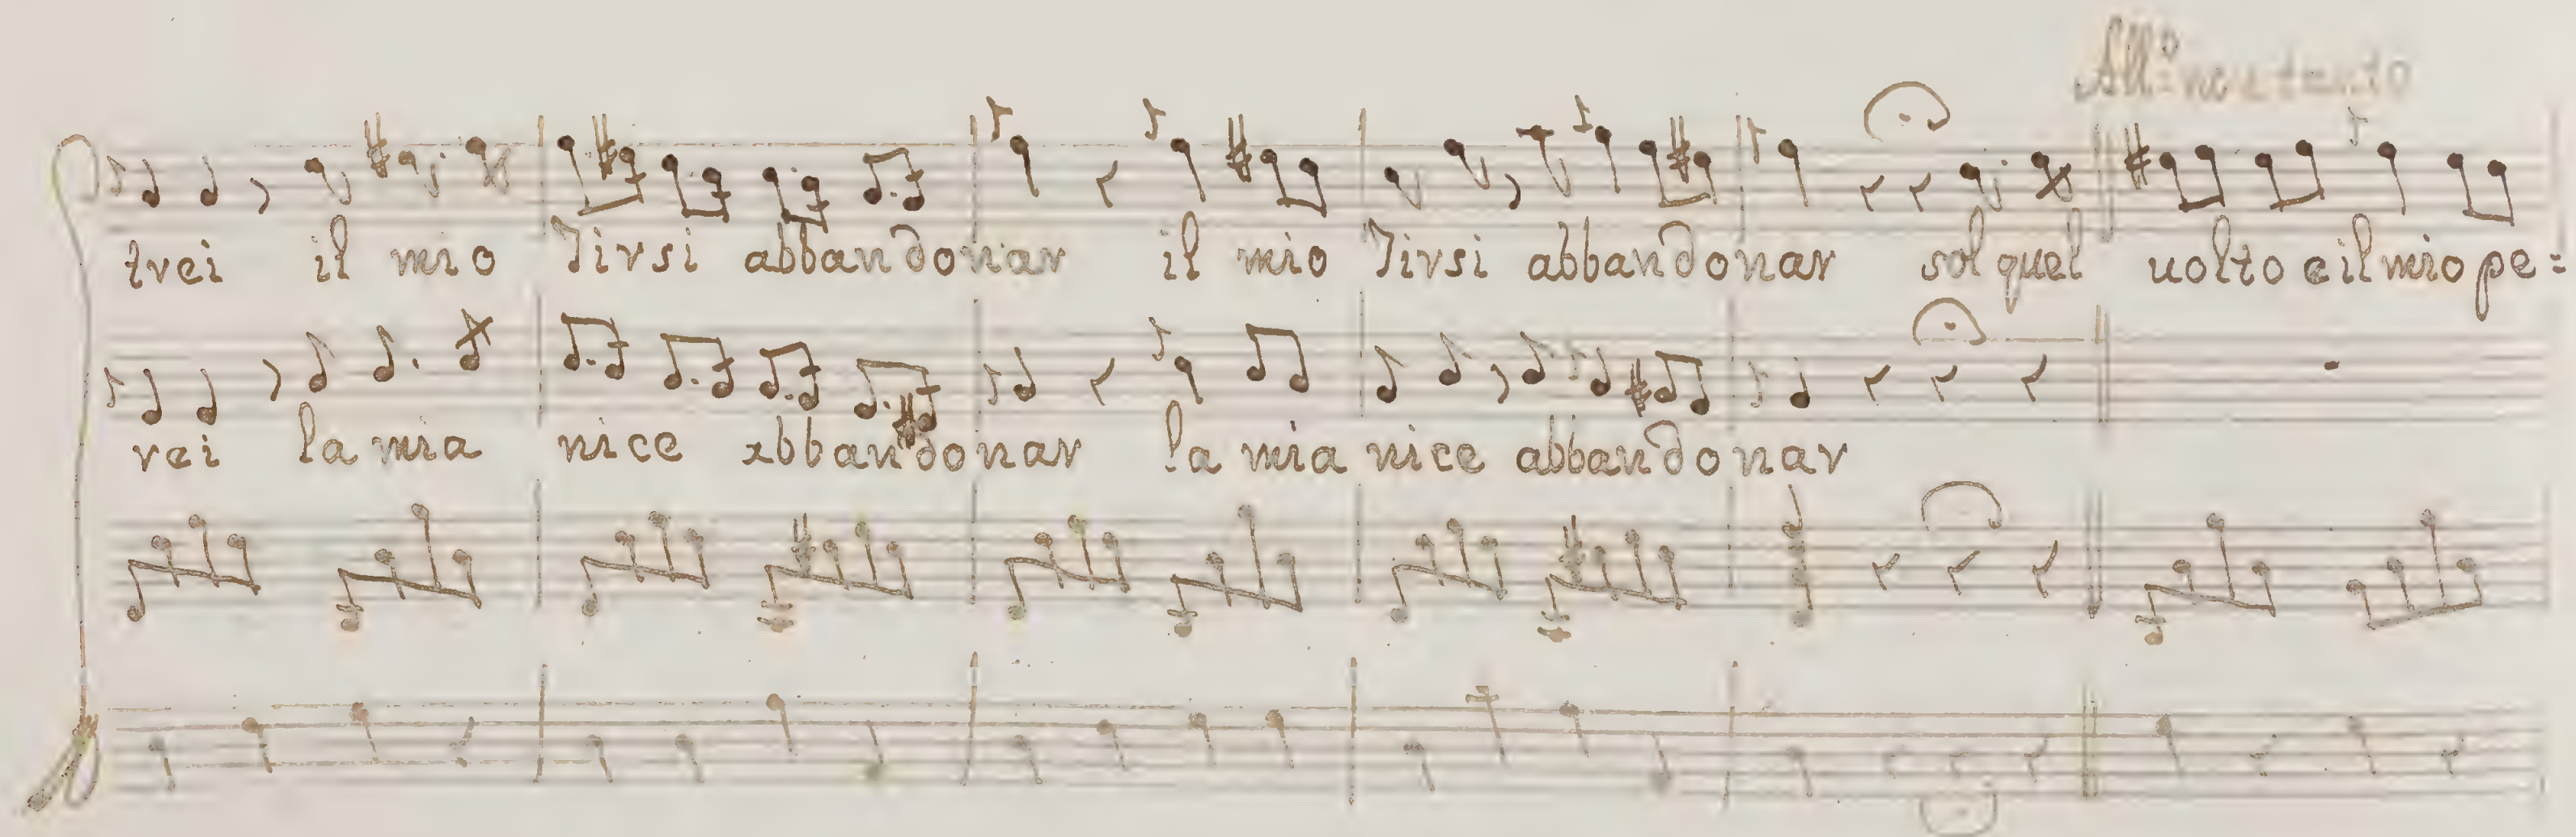 All:º non tanto
trei il mio Tirsi abbandonar il mio Tirsi abbandonar sol quel uolto e il mio pe=
rei la mia nice abbandonar la mia nice abbandonar